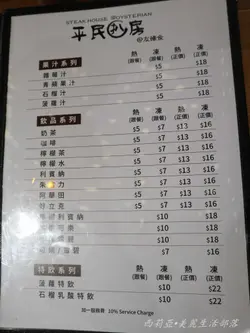 STEAK HOUSE OYSTERIAN
平民扒房
@友緣食
果汁系列 熱(跟餐) 凍(跟餐) 熱(正價) 凍(正價)
$5 $18
青蘋果汁 $5 $18
石榴汁 $5 $18
菠蘿汁 $5 $18
飲品系列 熱(跟餐) 凍(跟餐) 熱(正價) 凍(正價)
奶茶 $5 $7 $13 $16
咖啡 $5 $7 $13 $16
檸檬茶 $5 $7 $13 $16
檸檬水 $5 $7 $13 $16
利賓納 $5 $7 $13 $16
朱古力 $5 $7 $13 $16
阿華田 $5 $7 $13 $16
好立克 $5 $7 $13 $16
利賓納 $10 $18
$10 $18
$7 $16
特飲系列 凍(跟餐) 凍(正價)
菠蘿特飲 $10 $22
石榴乳酸特飲 $10 $22
加一服務費 10% Service Charge
西莉亞•美寓生活部落